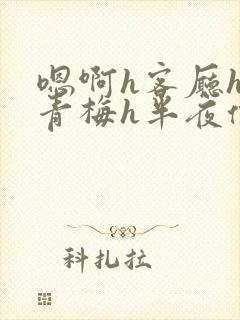 嗯啊h客厅h
青梅h半夜
科扎拉